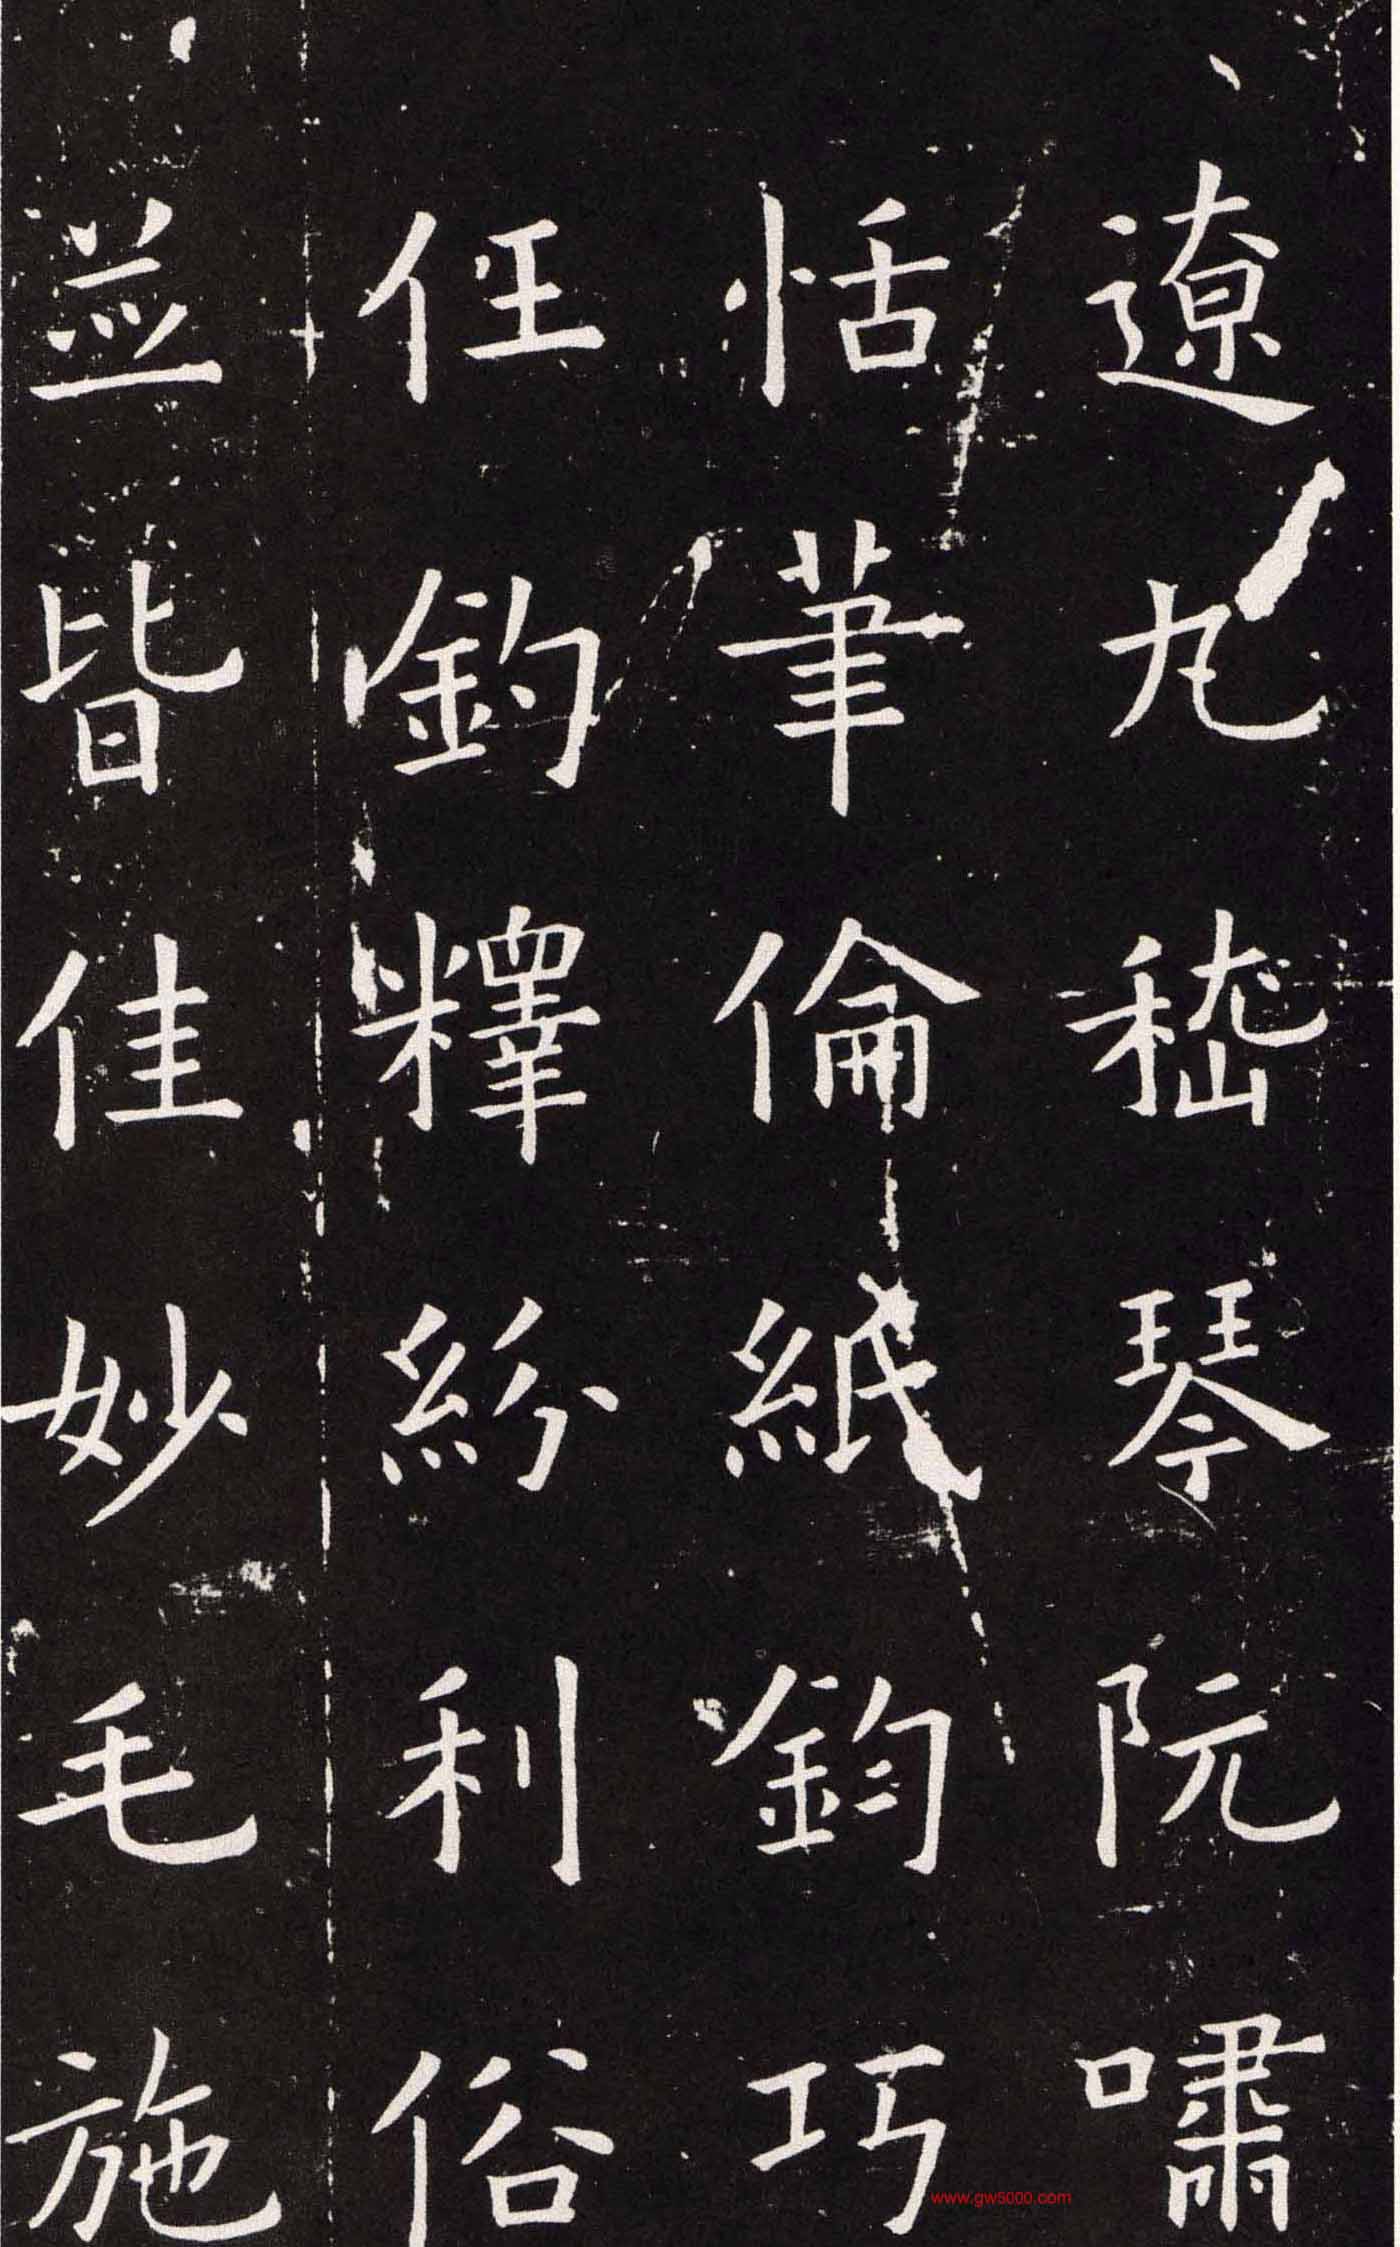 遼丸嵇琴阮嘯
恬筆倫紙鈞巧
任釣釋紛利俗
並皆佳妙毛施
www.gw5000.com